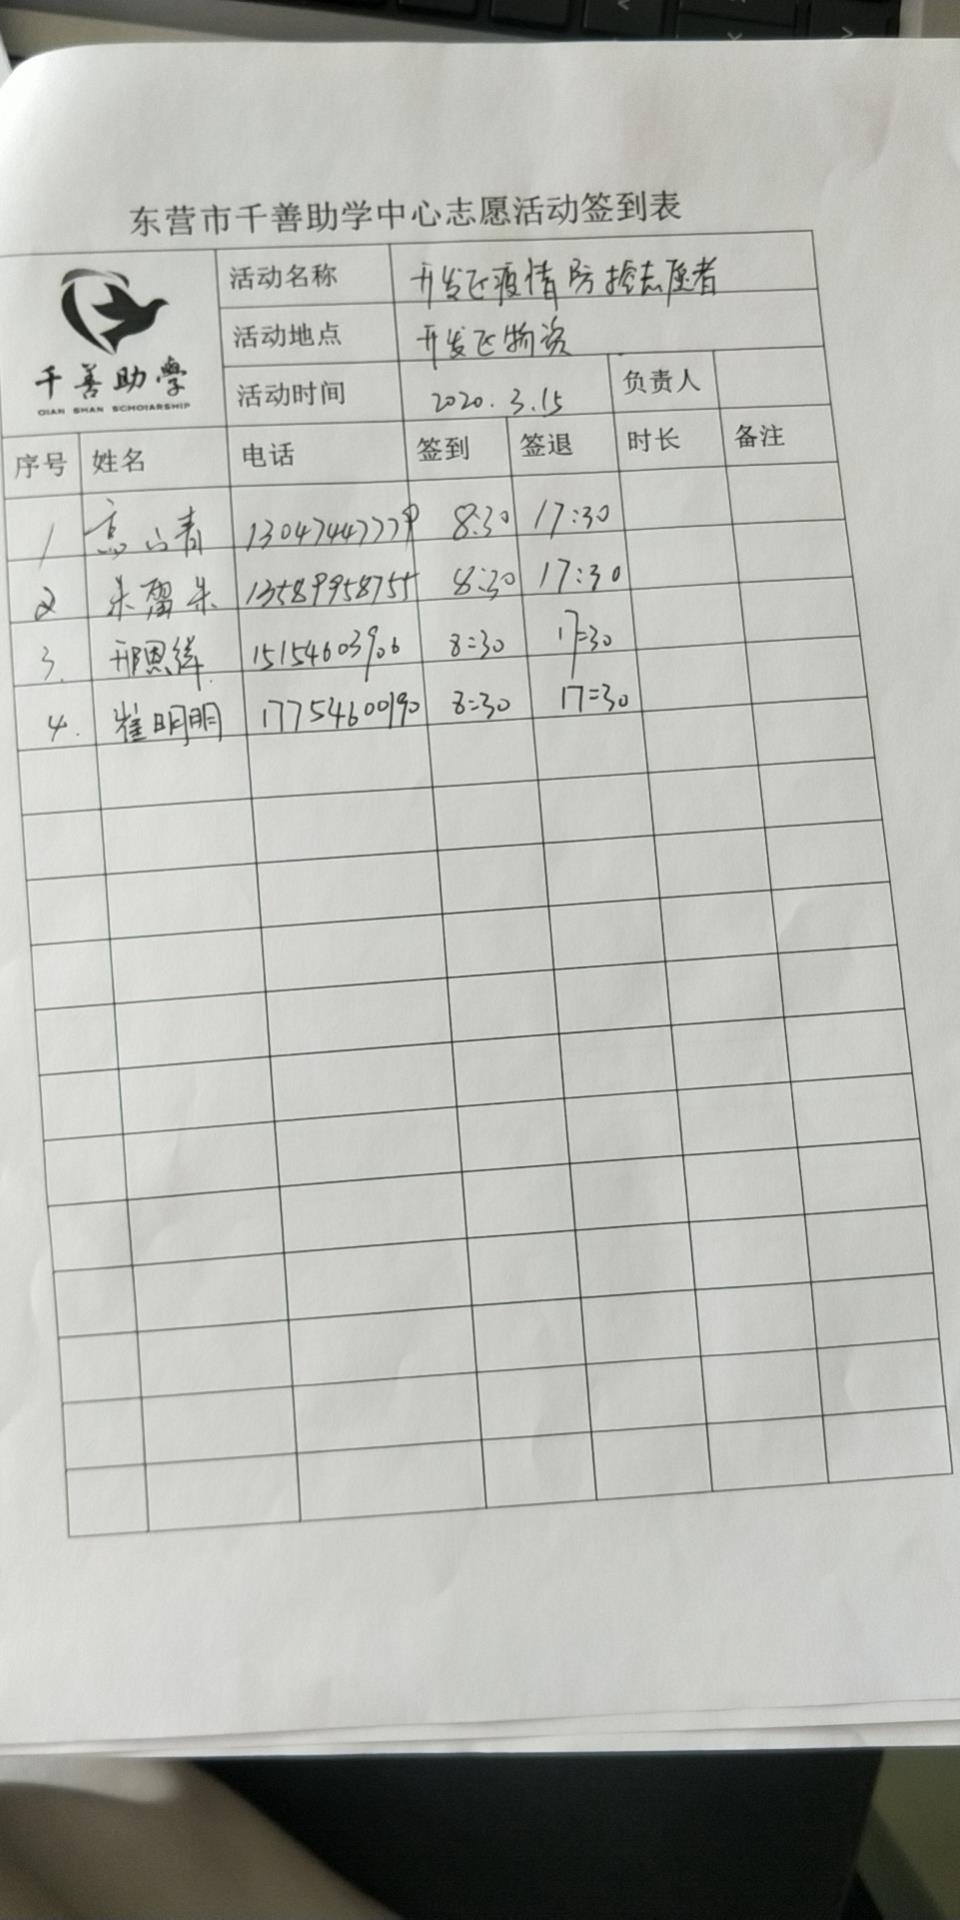 东营市千善助学中心志愿活动签到表
千善助学
QIAN SHAN SCHOLARSHIP
活动名称 开发区疫情防控志愿者
活动地点 开发区物资
活动时间 2020.3.15 负责人
序号 姓名 电话 签到 签退 时长 备注
1 8:30 17:30
2 13589958755 8:30 17:30
3. 邢恩绎 15154603906 8:30 17:30
4. 崔明明 17754600190 8:30 17:30